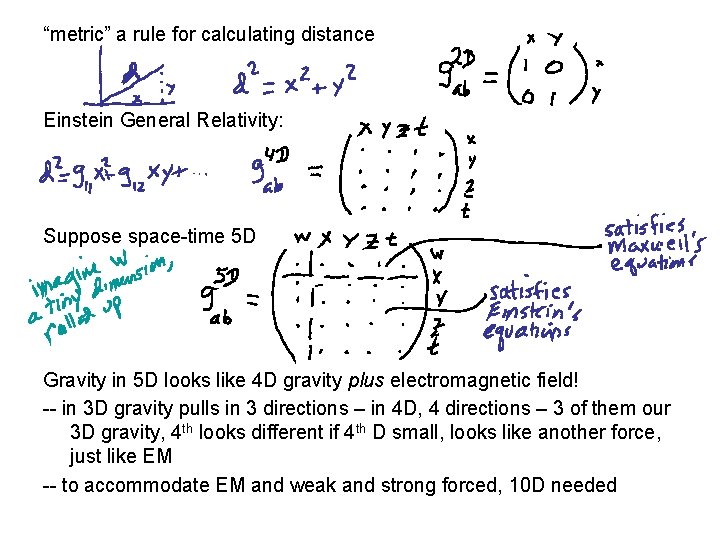 “metric” a rule for calculating distance
d
x
y
d² = x² + y²
g 2D ab = ( 1 0 0 1 )
x y
x
y
Einstein General Relativity:
d² = g₁₁x² + g₁₂ xy + ...
g 4D ab =
x y z t
x
y
z
t
Suppose space-time 5D
imagine w
a tiny dimension,
rolled up
g 5D ab =
w x y z t
w
x
y
z
t
satisfies
Maxwell's
equations
satisfies
Einstein's
equations
Gravity in 5D looks like 4D gravity plus electromagnetic field!
-- in 3D gravity pulls in 3 directions – in 4D, 4 directions – 3 of them our
3D gravity, 4th looks different if 4th D small, looks like another force,
just like EM
-- to accommodate EM and weak and strong forced, 10D needed